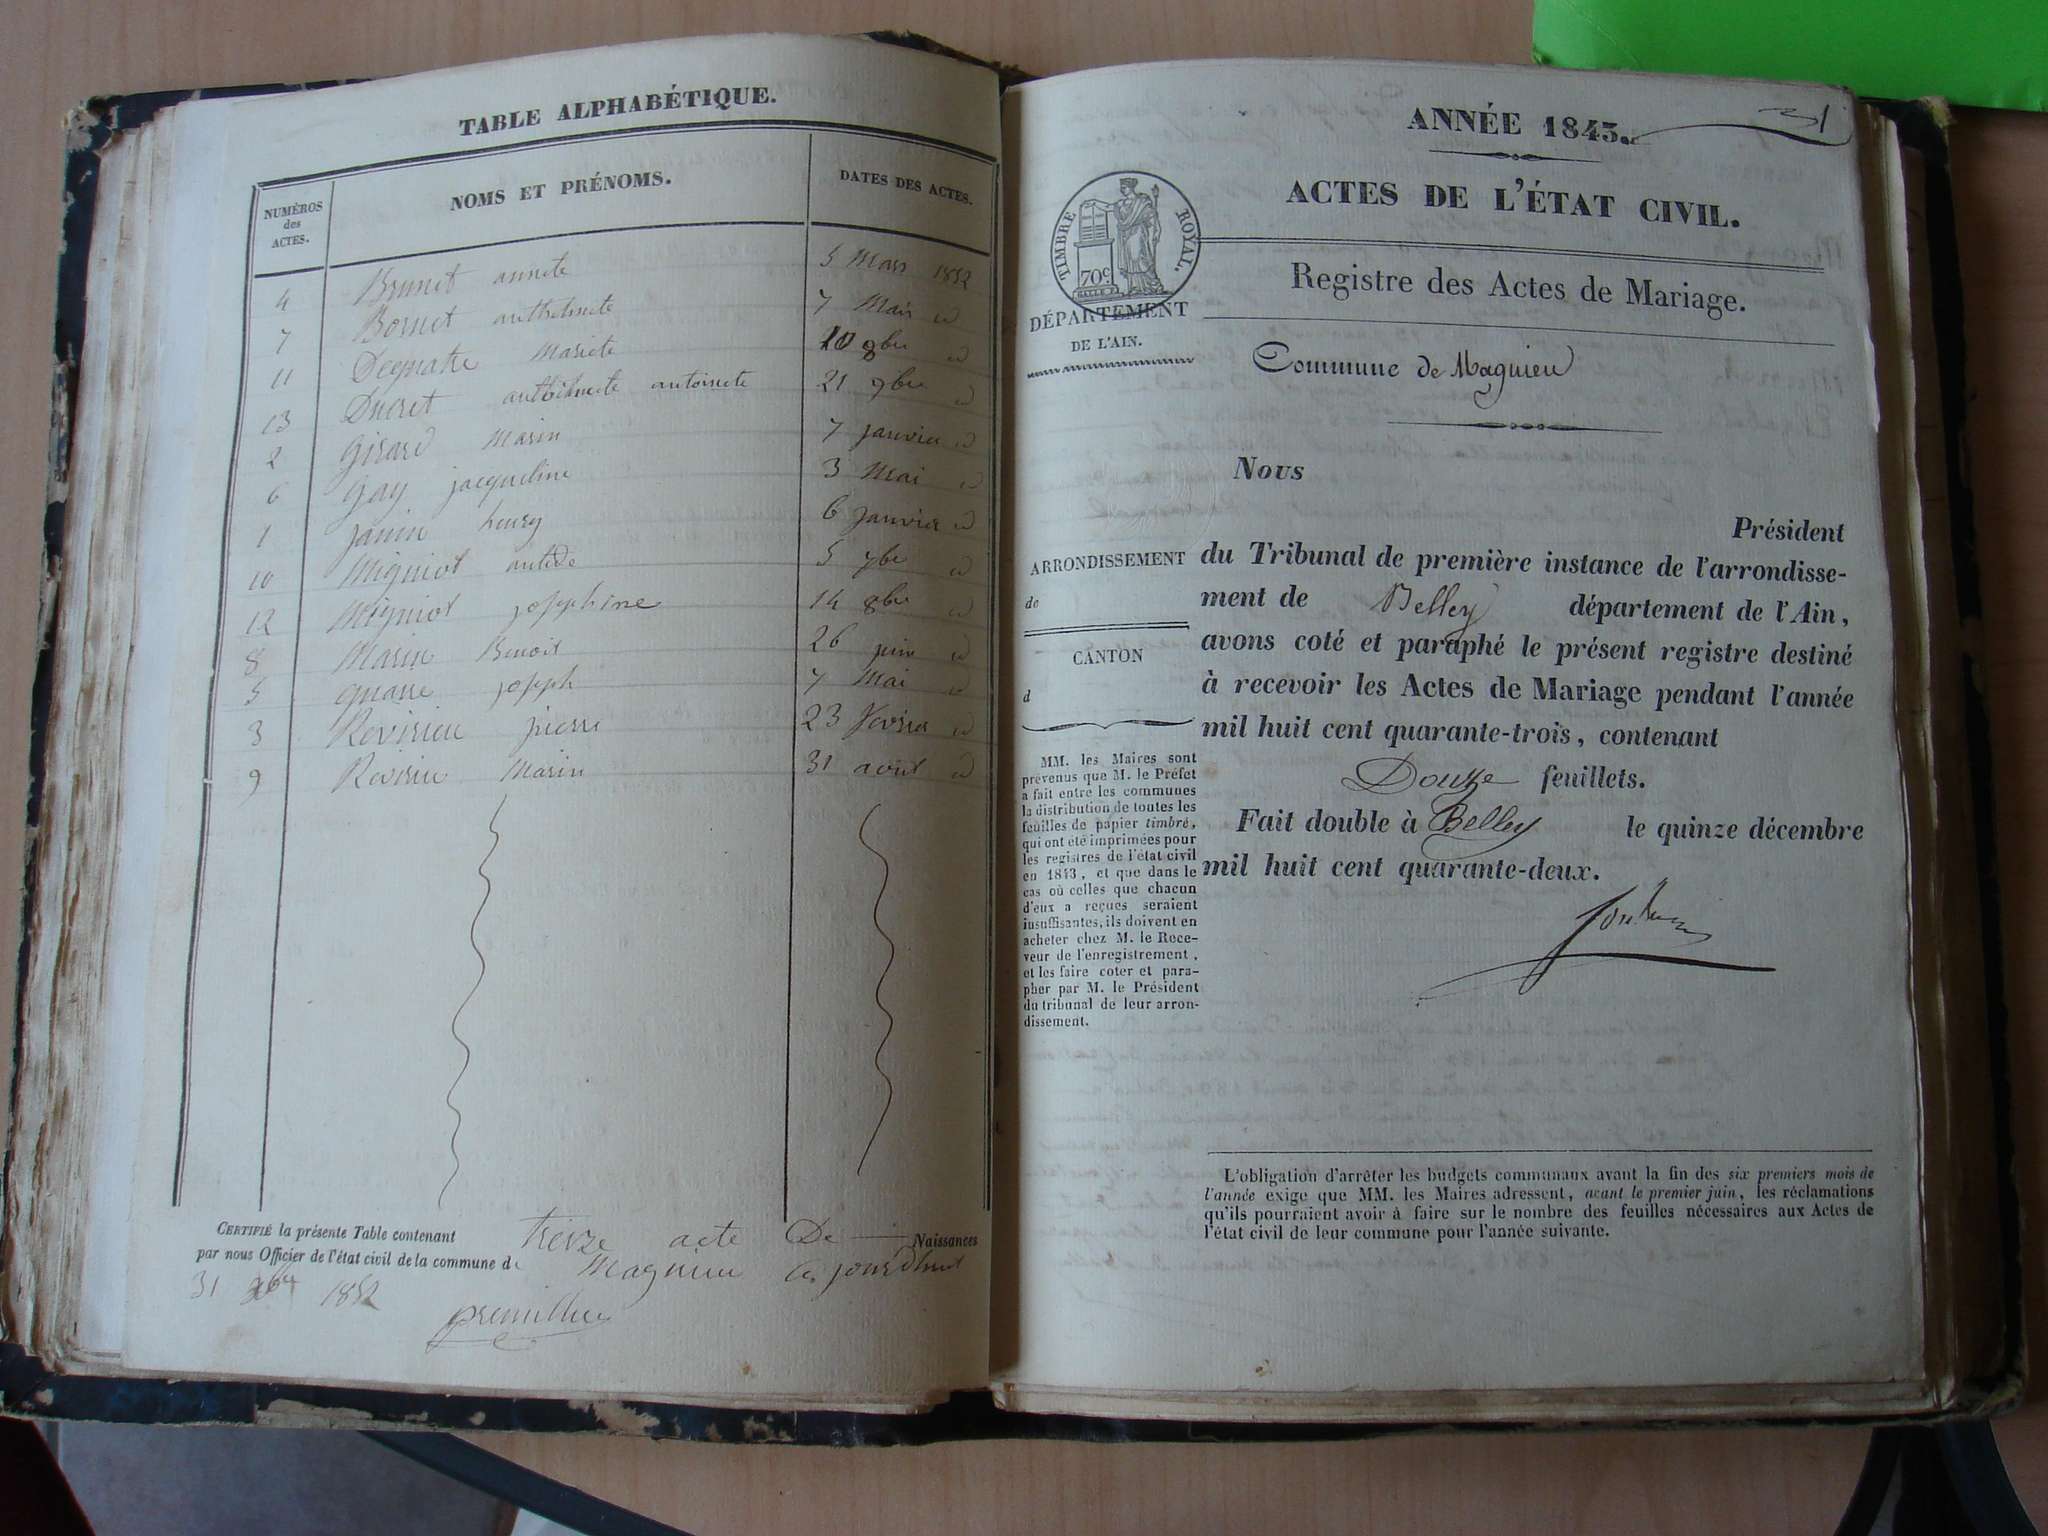 TABLE ALPHABÉTIQUE.
NUMÉROS des ACTES. NOMS ET PRÉNOMS. DATES DES ACTES.
4 Brunet annete 5 Mars 1852
7 Bornet anthelmete 7 Mai id
11 Mariete 20 8bre id
13 Ducret anthelmete antoinete 21 9bre id
2 Girard Marin 7 janvier id
6 Gay jacqueline 3 Mai id
1 Janin henry 6 janvier id
10 Migniot 5 7bre id
12 Migniot josephine 14 8bre id
8 Marin Benoit 26 juin id
5 joseph 7 Mai id
3 Revirieu pierre 23 fevrier id
9 Marin 31 avril id
CERTIFIÉ la présente Table contenant treize acte De Naissances
par nous Officier de l'état civil de la commune de Magnieu ce jourdhuit
31 1852
ANNÉE 1843. 31
ACTES DE L'ÉTAT CIVIL.
TIMBRE ROYAL.
70c
DÉPARTEMENT
DE L'AIN.
Registre des Actes de Mariage.
Commune de Magnieu
Nous
Président
du Tribunal de première instance de l'arrondisse-
ment de Belley département de l'Ain,
avons coté et paraphé le présent registre destiné
à recevoir les Actes de Mariage pendant l'année
mil huit cent quarante-trois, contenant
Douze feuillets.
Fait double à Belley le quinze décembre
mil huit cent quarante-deux.
ARRONDISSEMENT
de
CANTON
d
MM. les Maires sont
prévenus que M. le Préfet
a fait entre les communes
la distribution de toutes les
feuilles de papier timbré,
qui ont été imprimées pour
les registres de l'état civil
en 1843, et que dans le
cas où celles que chacun
d'eux a reçues seraient
insuffisantes, ils doivent en
acheter chez M. le Rece-
veur de l'enregistrement,
et les faire coter et para-
pher par M. le Président
du tribunal de leur arron-
dissement.
L'obligation d'arrêter les budgets communaux avant la fin des six premiers mois de
l'année exige que MM. les Maires adressent, avant le premier juin, les réclamations
qu'ils pourraient avoir à faire sur le nombre des feuilles nécessaires aux Actes de
l'état civil de leur commune pour l'année suivante.